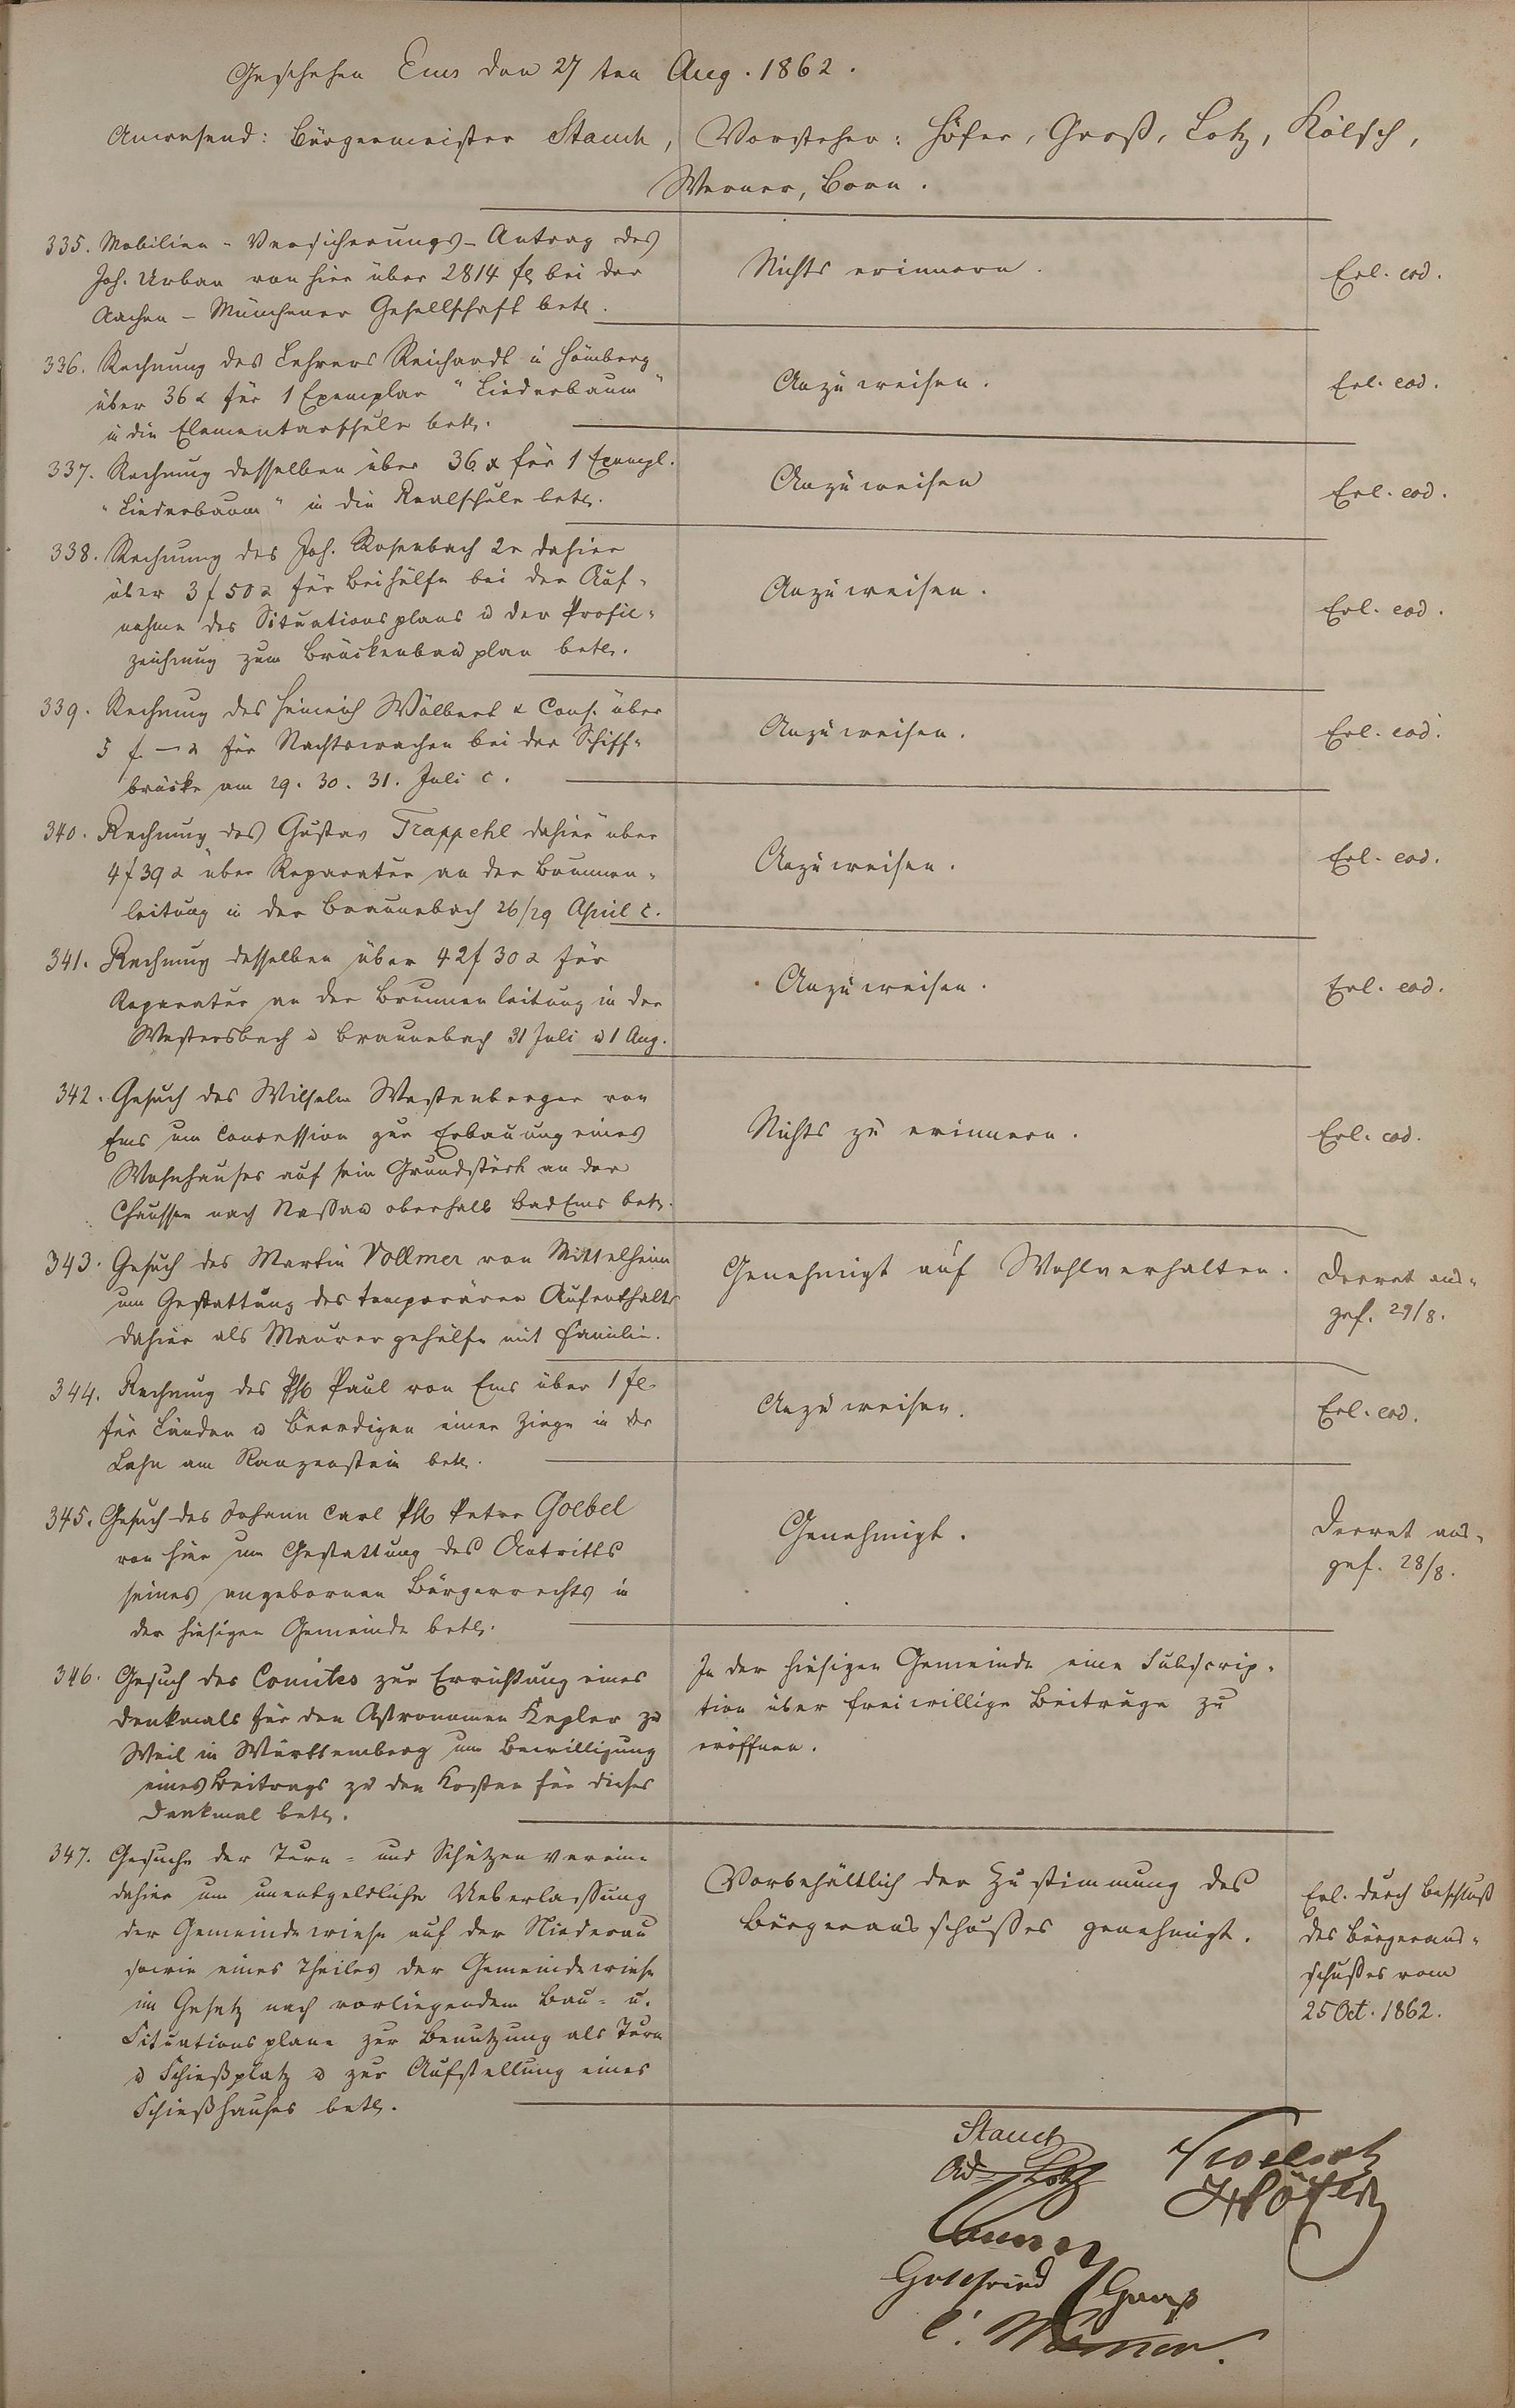 Geschehen Ems den 27ten Aug. 1862.
Anwesend: Bürgermeister Stauch, Vorsteher: Höfer, Groß, Lotz, Kölsch,
Werner, Born.
335. Mobilien-Versicherungs-Antrag des
Joh. Urban von hier über 2814 fl bei der
Aachen-Münchener Gesellschaft betr.
Nichts erinnern.
Erl. eod.
336. Rechnung des Lehrers Reichardt in Hömberg
über 36 x für 1 Exemplar "Liederbaum"
in die Elementarschule betr.
Anzuweisen.
Erl. eod.
337. Rechnung desselben über 36 x für 1 Exempl.
"Liederbaum" in die Realschule betr.
Anzuweisen
Erl. eod.
338. Rechnung des Joh. Rosenbach 2r dahier
über 3 f 50 x für Beihülfe bei der Auf-
nahme des Situationsplans u der Profil-
zeichnung zum Brückenbauplan betr.
Anzuweisen.
Erl. eod.
339. Rechnung des Heinrich Wölbert & Cons. über
5 f. — x für Nachtwachen bei der Schiff-
brücke am 29. 30. 31. Juli c.
Anzuweisen.
Erl. eod.
340. Rechnung des Gustav Trappehl dahier über
4 f 39 x über Reparatur an der Brunnen-
leitung in der Braunebach 26/29 April c.
Anzuweisen.
Erl. eod.
341. Rechnung desselben über 42 f 30 x für
Reparatur an der Brunnenleitung in der
Westersbach u Braunebach 31 Juli u 1 Aug.
Anzuweisen.
Erl. eod.
342. Gesuch des Wilhelm Westenberger von
Ems um Concession zur Erbauung eines
Wohnhauses auf sein Grundstück an der
Chaussee nach Nassau oberhalb Bad Ems betr.
Nichts zu erinnern.
Erl. eod.
343. Gesuch des Martin Vollmer von Mittelheim
um Gestattung des temporären Aufenthalts
dahier als Maurergehülfe mit Familie.
Genehmigt auf Wohlverhalten.
Decret aus-
gef. 29/8.
344. Rechnung des Ph Paul von Ems über 1 fl.
für Länden u Beerdigen einer Ziege in der
Lahn am Ranzenstein betr.
Anzuweisen.
Erl. eod.
345. Gesuch des Johann Carl Ph Peter Goebel
von hier um Gestattung des Antritts
seines angebornen Bürgerrechts in
der hiesigen Gemeinde betr.
Genehmigt.
Decret aus-
gef. 28/8.
346. Gesuch des Comites zur Errichtung eines
Denkmals für den Astronomen Kepler zu
Weil in Württemberg um Bewilligung
eines Beitrags zu den Kosten für dieses
Denkmal betr.
In der hiesigen Gemeinde eine Subscrip-
tion über freiwillige Beiträge zu
eröffnen.
347. Gesuche der Turn- und Schützenvereine
dahier um unentgeldliche Ueberlassung
der Gemeindewiese auf der Niederau
sowie eines Theiles der Gemeindewiese
im Gesetz nach vorliegendem Bau- u.
Situationsplane zur Benutzung als Turn
u Schießplatz u zur Aufstellung eines
Schießhauses betr.
Vorbehältlich der Zustimmung des
Bürgerausschusses genehmigt.
Erl. durch Beschluß
des Bürgeraus-
schusses vom
25 Oct. 1862.
Stauch
Ad. Lotz
Koelsch
Höfer
Gottfried Groß
C. Werner.